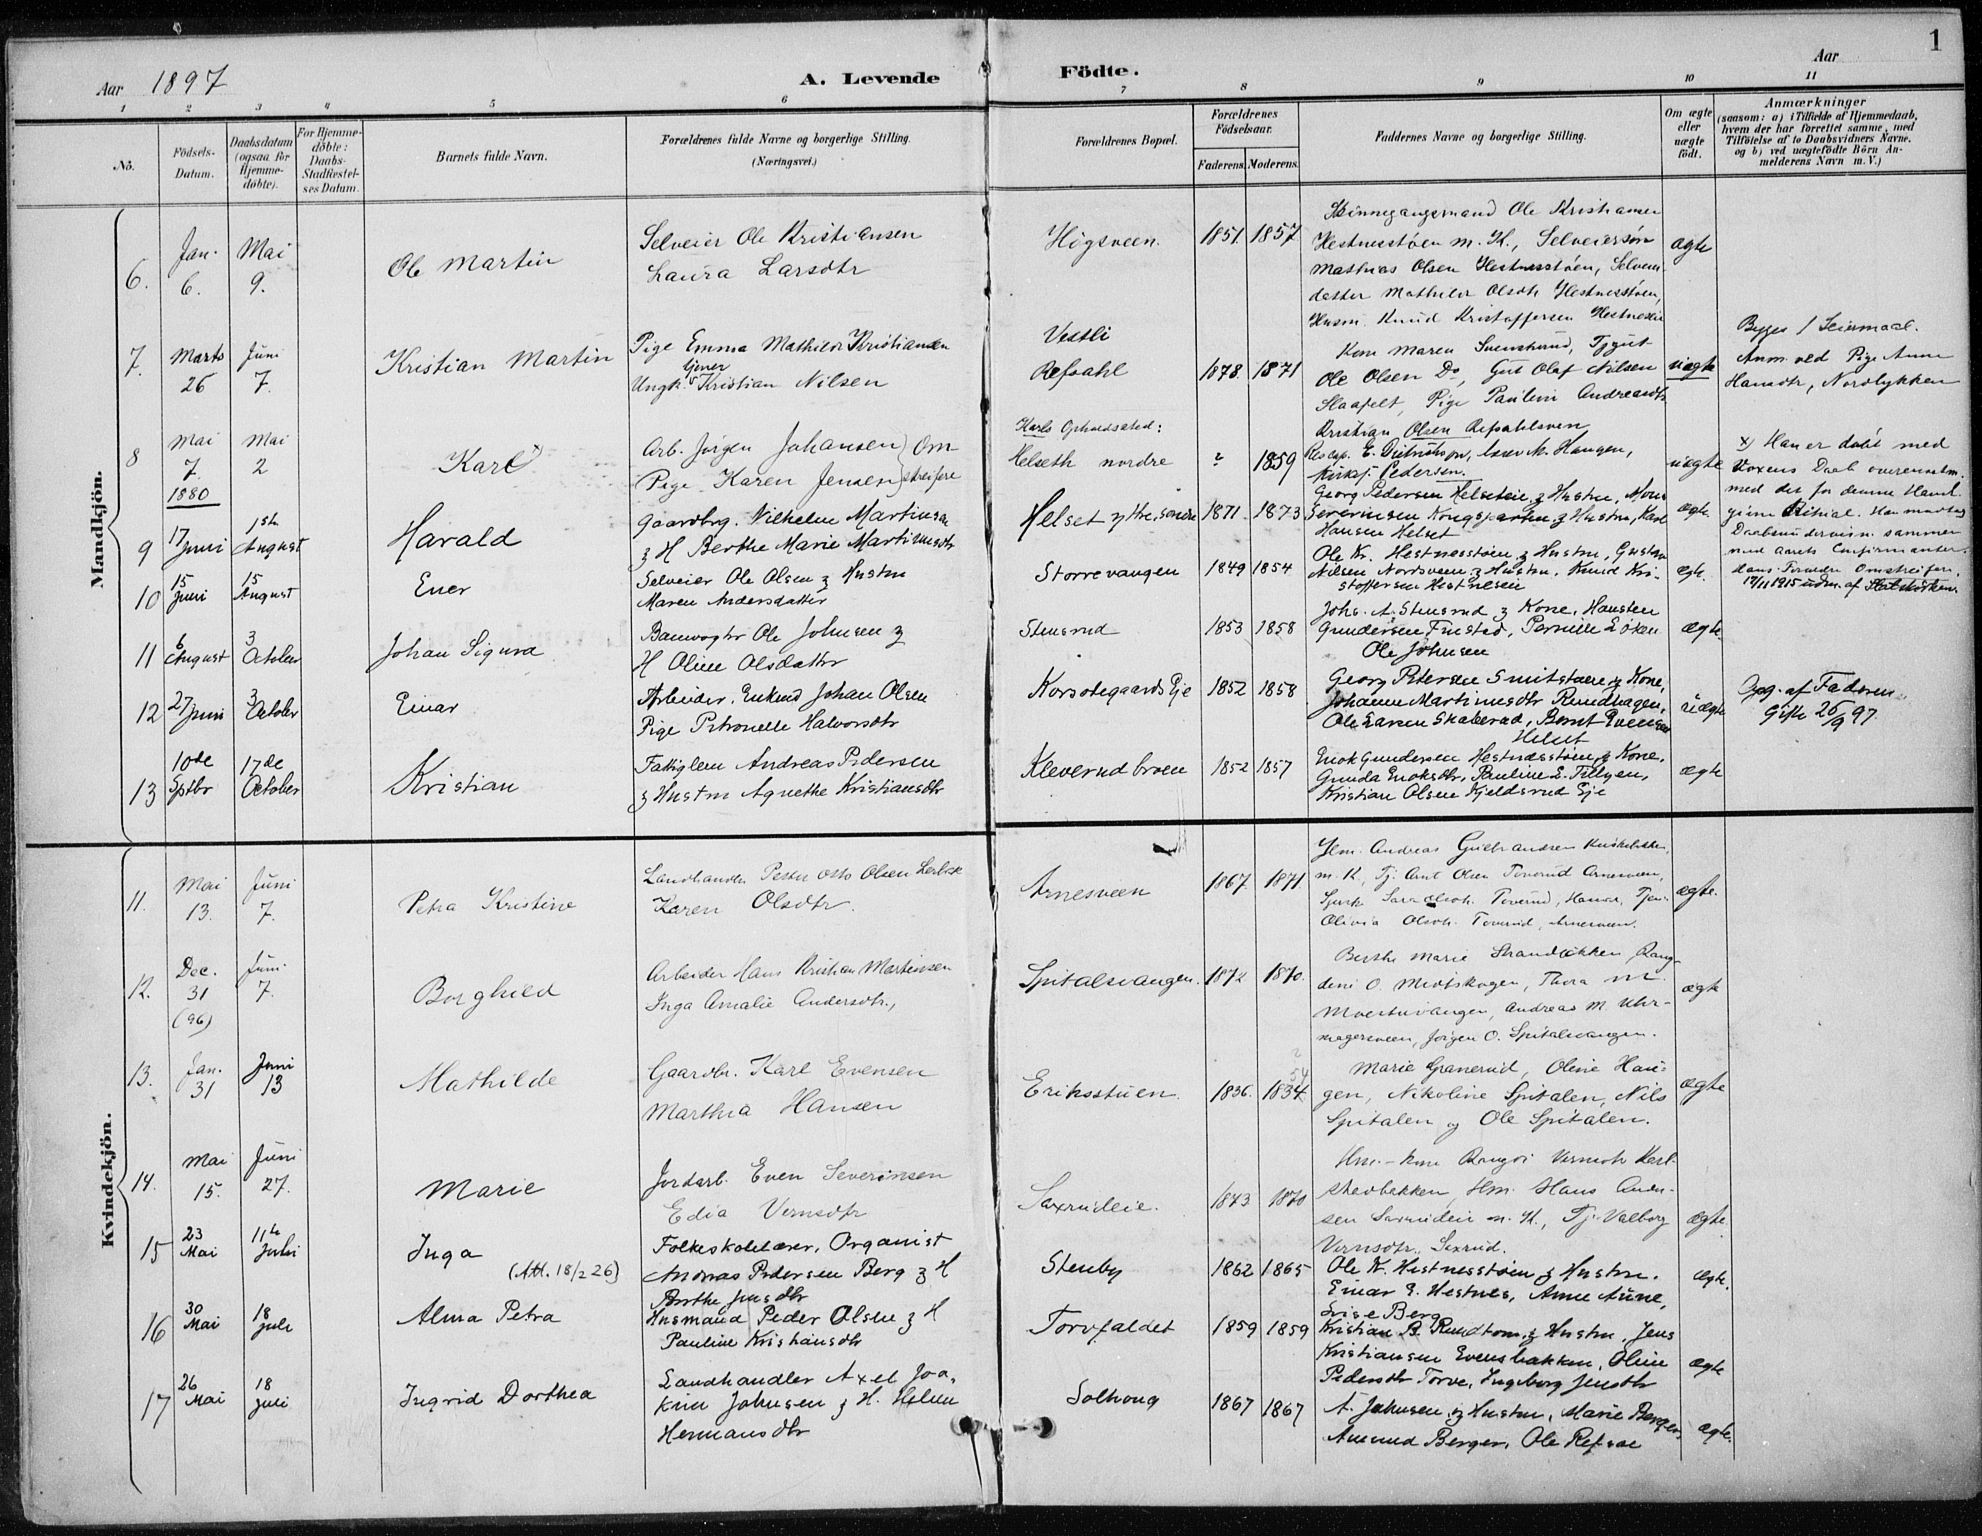 1
Aar 1897
A. Levende Födte.
Aar
1 2 3 4 5 6 7 8 9 10 11
No.
Födsels-Datum.
Daabsdatum (ogsaa for Hjemmedöbte).
For Hjemmedöbte: Daabs-Stadfæstelses Datum.
Barnets fulde Navn.
Forældrenes fulde Navne og borgerlige Stilling.
(Næringsvei.)
Forældrenes Bopæl.
Forældrenes Födselsaar.
Faderens. Moderens.
Faddernes Navne og borgerlige Stilling.
Om ægte eller uægte födt.
Anmærkninger
(saasom: a) i Tilfælde af Hjemmedaab,
hvem der har forrettet samme, med
Tilföielse af to Daabsvidners Navne.
og b) ved uægtefödte Börn Anmelderens Navn m. V.)
Mandkjön.
6. Jan. 6. Mai 9.
Ole Martin
Selveier Ole Kristiansen
Laura Larsdtr
Högsveen. 1851. 1857
Ole Kristiansen
Hestnesstöen m. K., Selveiersön
Mathias Olsen Hestnesstöen, Selveier
datter Mathilde Olsdtr Hestnesstöen,
Husm. Knud Kristoffersen Hestneseie
ægte
7. Marts 26 Juni 7.
Kristian Martin
Pige Emma Mathilde Kristiansen
Ungk. Kristian Einer Nilsen
Vestli
Refsahl 1878. 1871
Kone Maren Svensrud, Tjgut
Ole Olsen Do, Gut Olaf Nilsen
Slaafelt, Pige Pauline Andreasdtr
Kristian Olsen Refsahlsven
uægte
Anm. ved Pige Anne
Hansdtr, Nordlykken
8 Mai 7 1880 Mai 2
Karl x)
Arb. Jörgen Johansen) Om
Pige Karen Jensen) streifere
Karls Opholdssted:
Helseth nordre ? 1859
Kirksj. Pedersen.
uægte
x) Han er döbt med
Voxens Daab overensstem.
med det for denne Handl.
givne Ritual. Han modtog
Daabsundervisn. sammen
med Aarets Confirmanter.
Hans Forældre Omstreifere.
17/11 1915 udm. af Statskirken.
9 17 Juni 1ste August
Harald
Gaardbrg. Vilhelm Martinsen
& H Berthe Marie Martinusdtr
Helset ytre, söndre 1871. 1873
Georg Pedersen Helseteie, & Hustru, Mons
Severinsen Kongsparten & Hustru, Karl
Hansen Helset
ægte.
10 15 Juni 15 August
Ener
Selveier Ole Olsen & Hustru
Maren Andersdatter
Storrevangen 1849 1854
Ole Kr. Hestnesstöen & Hustru, Gustav
Nilsen Nordsveen & Hustru, Knud Kri-
stoffersen Hestneseie
ægte.
11 6 August 3 October
Johan Sigurd
Banevogtr Ole Johnsen &
H Oline Olsdatter
Stensrud 1853 1858
Johs. A. Stensrud & Kone, Hansten
Gundersen Finstad, Pernille Löken
Ole Johnsen
ægte.
12 27 Juni 3 October
Einar
Arbeider, Enkemd Johan Olsen
Pige Petronelle Halvorsdtr
Korsödegaards Eje 1852 1858
Georg Petersen Smitstuen & Kone,
Johanne Martinusdtr Rundhagen,
Ole Larsen Skaberud, Bernt Evensen
Helset
uægte
Opg. af Faderen
Gifte 26/9 97.
13 10de Sptbr 17de October
Kristian
Fattiglem Andreas Pedersen
& Hustru Agnethe Kristiansdtr
Kleverud broen 1852 1857
Enok Gundersen Hestnesstöen & Kone,
Gunda Enoksdtr, Pauline E. Tillgen,
Kristian Olsen Kjeldsrud Eje
ægte
Kvindekjön.
11. Mai 13. Juni 7.
Petra Kristine
Landhandlr. Peter Otto Olsen
Karen Olsdtr.
Arnesveen 1867. 1871.
Hm. Andreas Gulbrandsen
m. K., Tj. Amt Olsen Toverud Arnesveen,
Olivia Olsdtr. Toverud, Arnesveen.
ægte.
12. Dec. 31 (96) Juni 7.
Borghild
Arbeider Hans Kristian Martinsen
Inga Amalie Andersdtr.,
Spitalsvangen. 1872 1870.
Berthe Marie Strandbakken, Rang-
dine O. Midtskogen, Thora M.
Moestuvangen, Andreas M. Uhr-
magersveen, Jörgen O. Spitalsvangen.
ægte
13. Jan. 31 Juni 13
Mathilde
Gaardbr. Karl Evensen
Marthia Hansen
Eriksstuen. 1836. 1834. ? 54
Marie Granerud, Oline Hau-
gen, Nikoline Spitalen, Nils
Spitalen og Ole Spitalen.
ægte
14. Mai 15. Juni 27.
Marie
Jordarb. Even Severinsen
Edia Vernsdtr
Saxrudeie. 1873 1870
Hm.-kone Rangdi Vernsdtr Kerl-
stadbakken, Hm. Hans Ander-
sen Saxrudeie m. K., Tj. Valborg
Vernsdtr. Saxrud.
ægte
15 23 Mai 11te Juli
Inga
(Att. 18/2 26)
Folkeskolelærer, Organist
Andreas Pedersen Berg & H
Berthe Jensdtr
Stenby 1862 1865
Ole K. Hestnesstöen & Hustru.
Einar E. Hestnes, Anne Aune,
Lovise Berg
ægte.
16 30 Mai 18 Juli
Alma Petra
Husmand Peder Olsen & H
Pauline Kristiansdtr
Torvfaldet 1859 1859
Kristian B Rundtom & Hustru, Jens
Kristiansen Evensbakken, Oline
Pedersdtr Torve, Ingeborg Jensdtr
ægte
17 26 Mai 18 Juli
Ingrid Dorthea
Landhandler Axel Joa-
kim Johnsen & H. Helene
Hermansdtr
Solhoug 1867 1867
A. Johnsen & Hustru, Marie Berger,
Amund Berger, Ole Refsae
ægte.